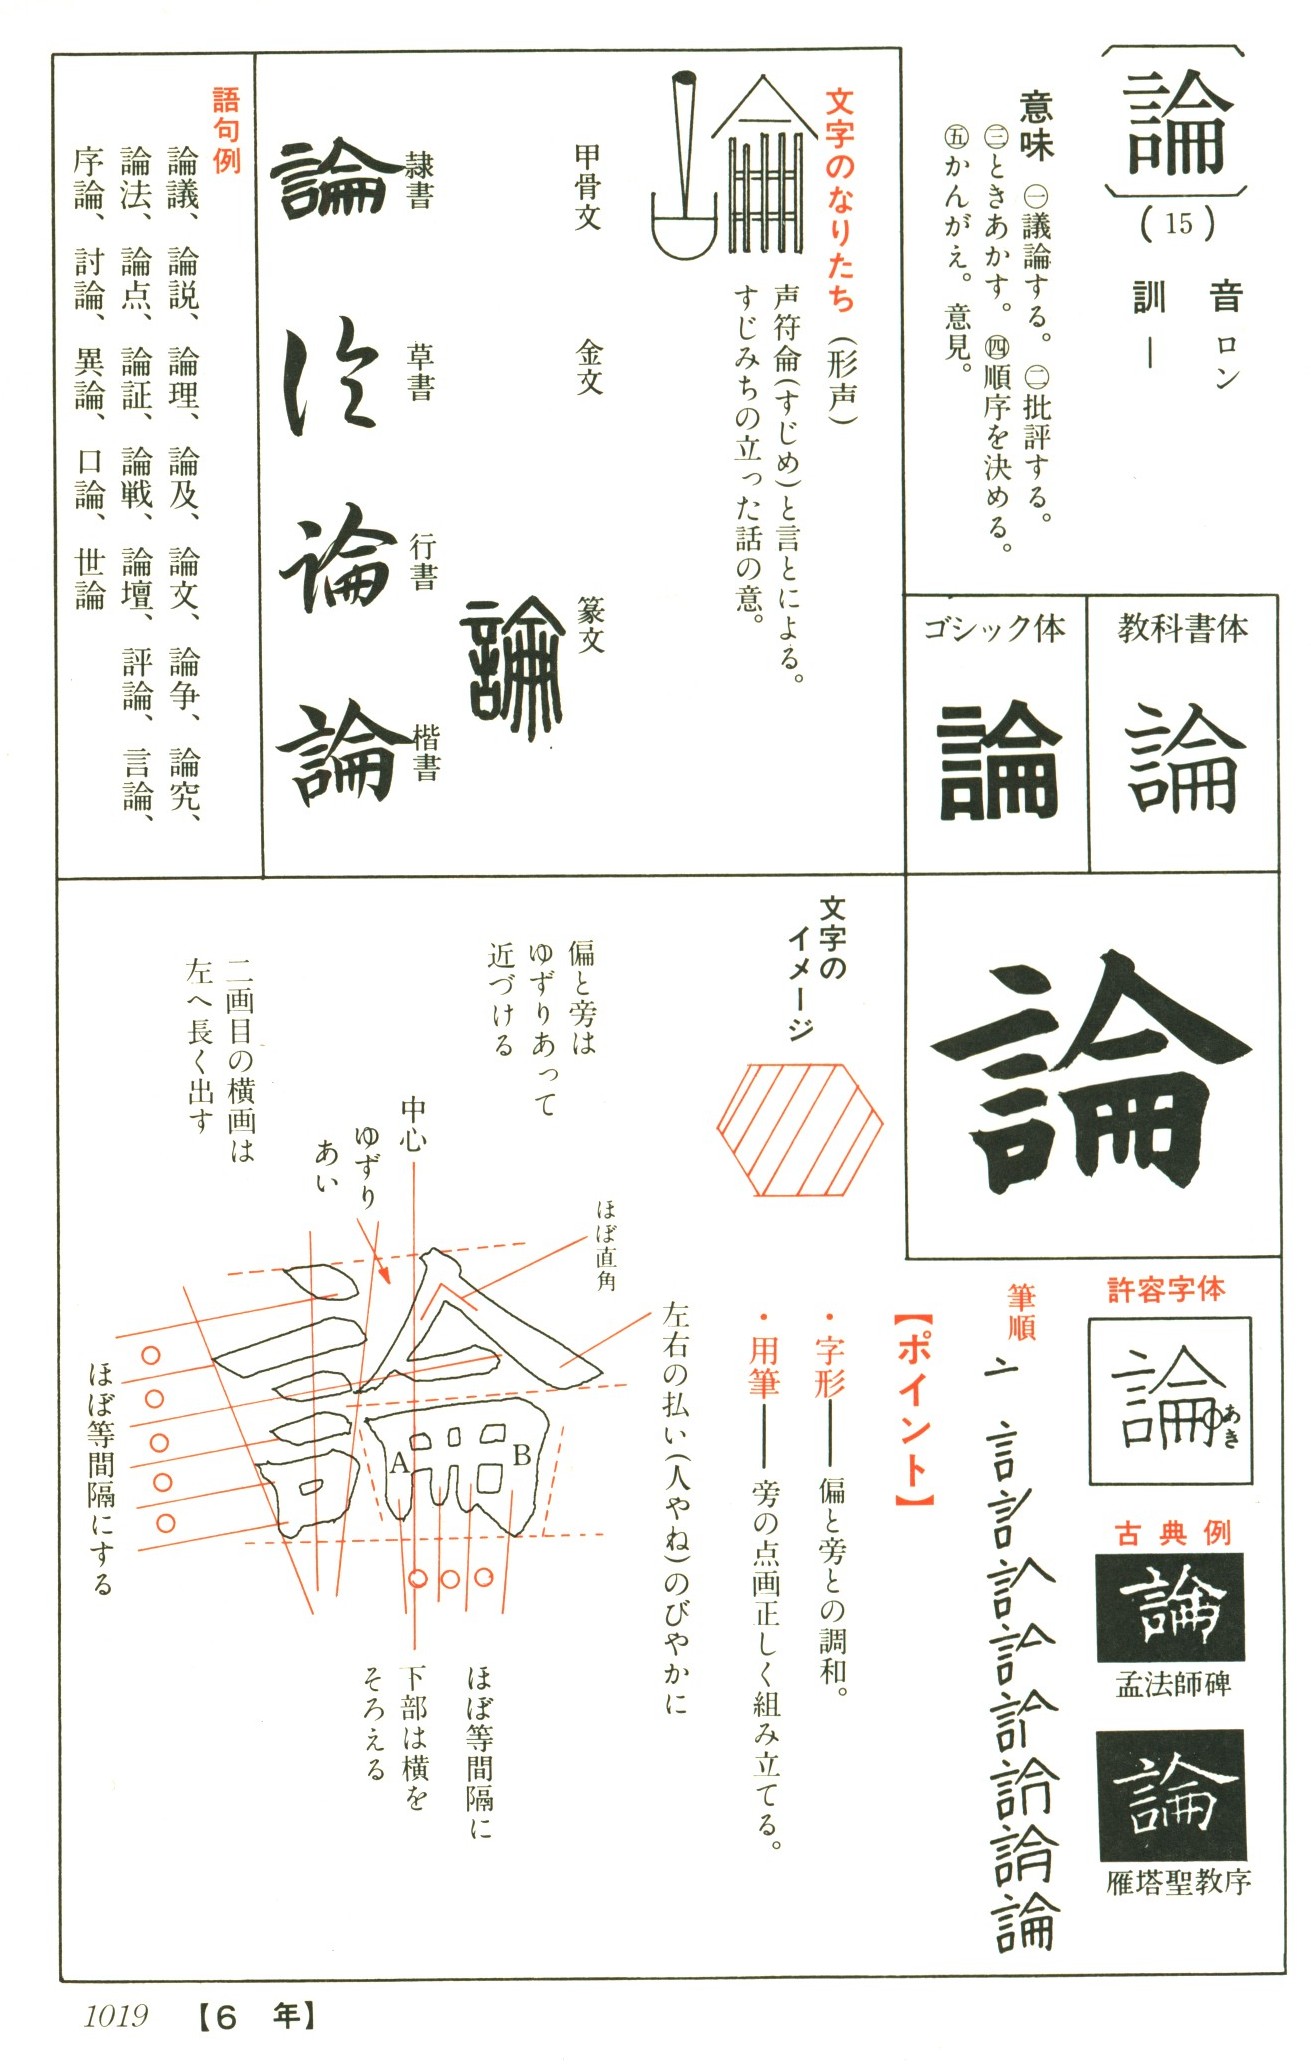 論
(15)
音 ロン
訓 ―
意味 ㊀議論する。㊁批評する。
㊂ときあかす。㊃順序を決める。
㊄かんがえ。意見。
教科書体
論
ゴシック体
論
文字のなりたち(形声)
声符侖(すじめ)と言とによる。
すじみちの立った話の意。
甲骨文
金文
篆文
論
隷書
論
草書
論
行書
論
楷書
論
語句例
論議、論説、論理、論及、論文、論争、論究、
論法、論点、論証、論戦、論壇、評論、言論、
序論、討論、異論、口論、世論
論
許容字体
論
あき
古典例
論
孟法師碑
論
雁塔聖教序
筆順
論
【ポイント】
・字形―偏と旁との調和。
・用筆―旁の点画正しく組み立てる。
文字の
イメージ
偏と旁は
ゆずりあって
近づける
二画目の横画は
左へ長く出す
中心
ゆずり
あい
ほぼ直角
左右の払い(人やね)のびやかに
A
B
ほぼ等間隔にする
ほぼ等間隔に
下部は横を
そろえる
1019 【6 年】